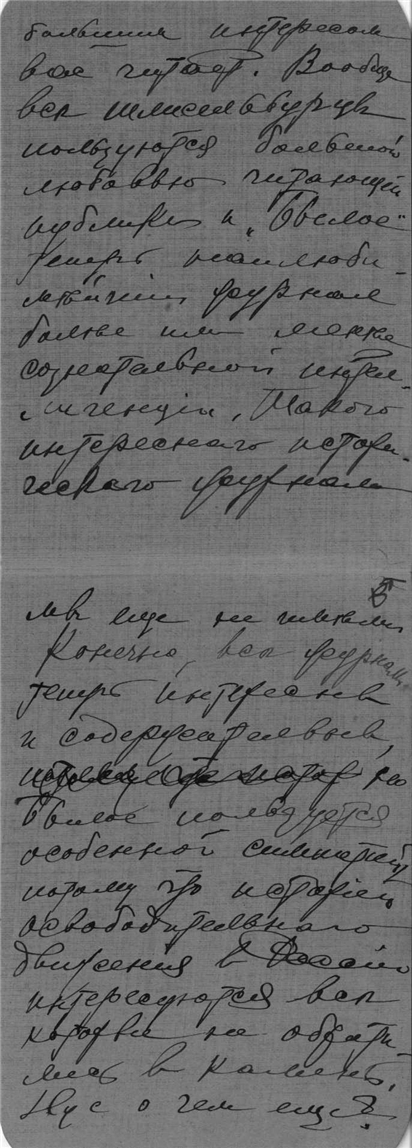 большим интересом
вас читает. Вообще
всѣ шлиссельбуржцы
пользуются большой
любовью читающей
публики и „Былое"
теперь наилюби-
мѣйчий журнал
болѣе или менѣе
сознательной интел-
лигенціи. Такого
интереснаго истори-
ческаго журнала
5
мы еще не имѣли
Конечно, всѣ журналы
теперь интересны
и содержательны,
но
Былое пользуется
особенной симпатіей
потому что исторіей
освободительнаго
движенія в Россіи
интересуются всѣ
которые не обрати-
лись в камень.
Ну с о чем еще?